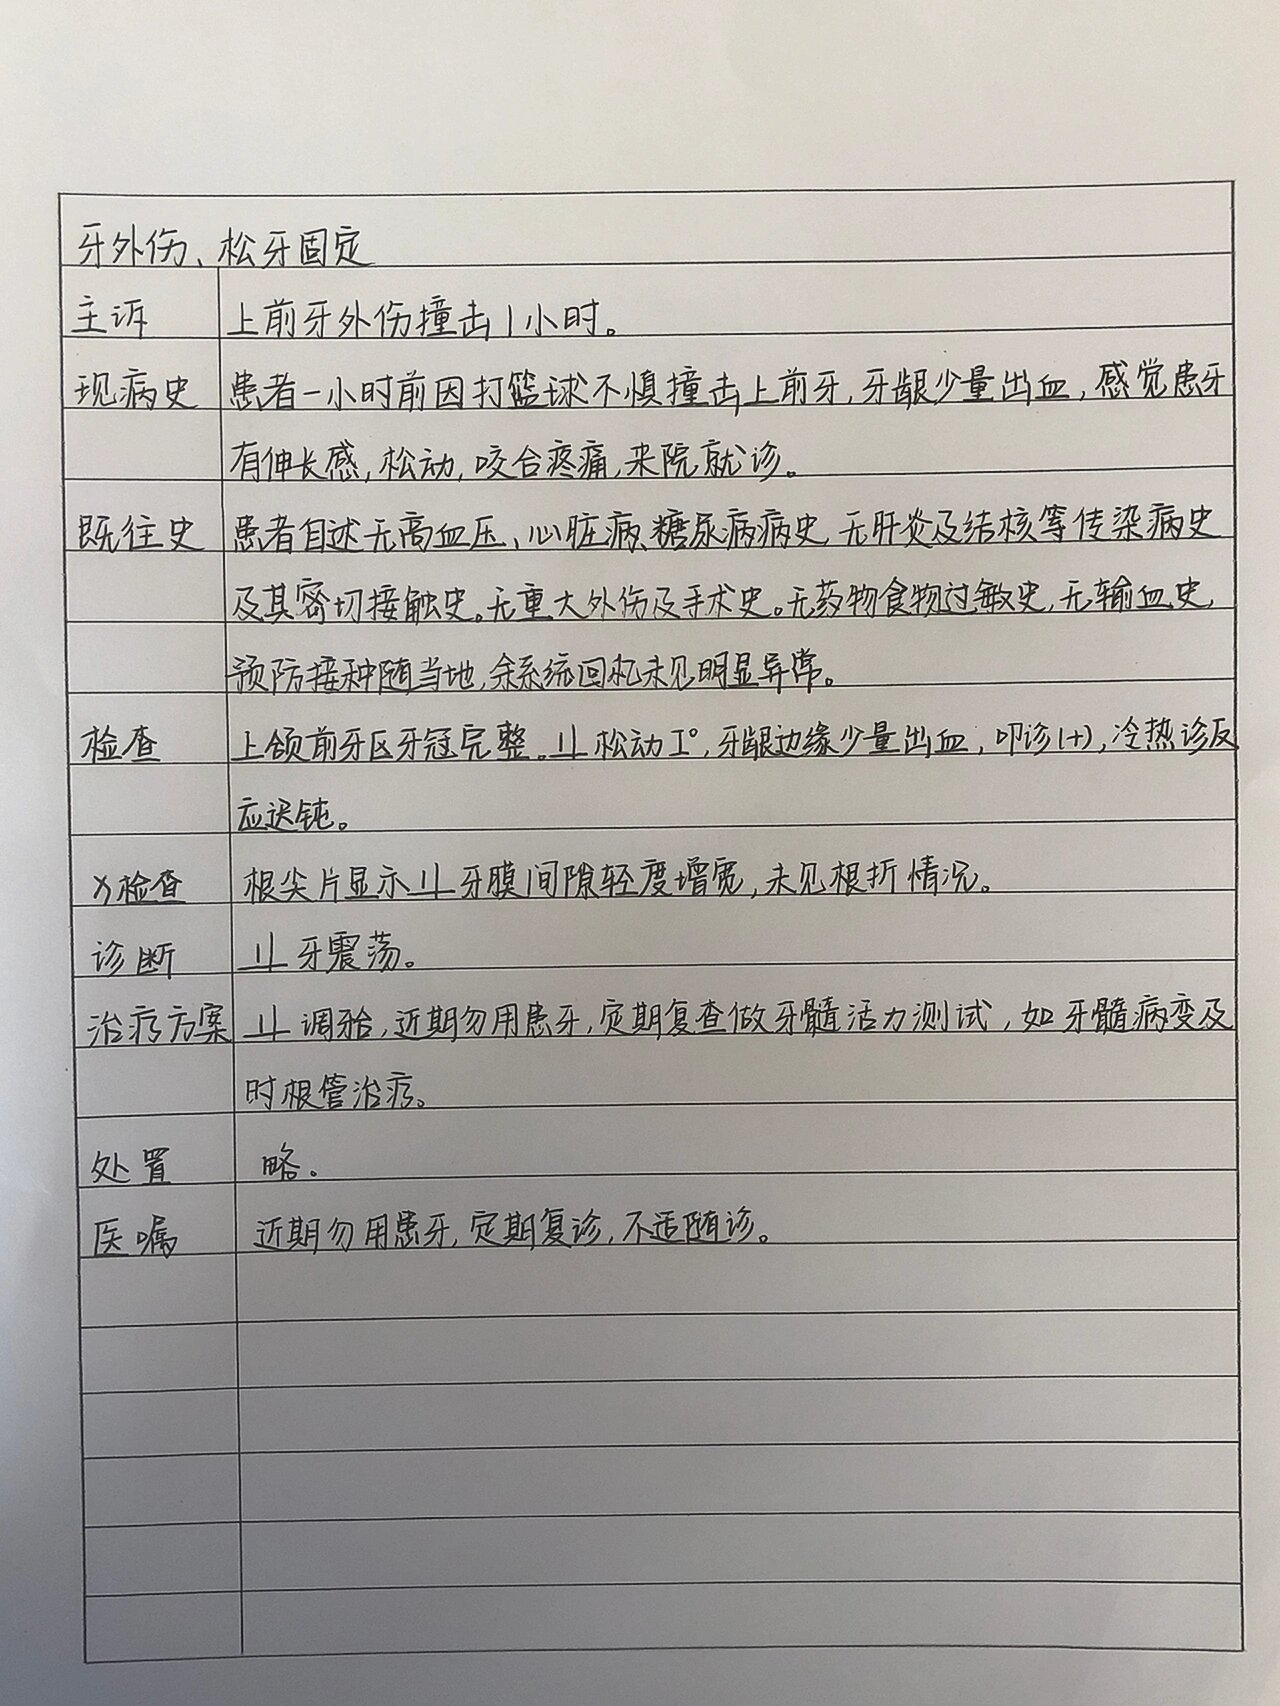 牙外伤、松牙固定
主诉 上前牙外伤撞击1小时。
现病史 患者一小时前因打篮球不慎撞击上前牙,牙龈少量出血,感觉患牙
有伸长感,松动,咬合疼痛,来院就诊。
既往史 患者自述无高血压、心脏病、糖尿病病史,无肝炎及结核等传染病史
及其密切接触史。无重大外伤及手术史。无药物食物过敏史,无输血史,
预防接种随当地,余系统回机未见明显异常。
检查 上颌前牙区牙冠完整。1⊥松动I°,牙龈边缘少量出血,叩诊(+),冷热诊反
应迟钝。
X检查 根尖片显示1⊥牙膜间隙轻度增宽,未见根折情况。
诊断 1⊥牙震荡。
治疗方案 1⊥调𬌗,近期勿用患牙,定期复查做牙髓活力测试,如牙髓病变及
时根管治疗。
处置 略.
医嘱 近期勿用患牙,定期复诊,不适随诊。